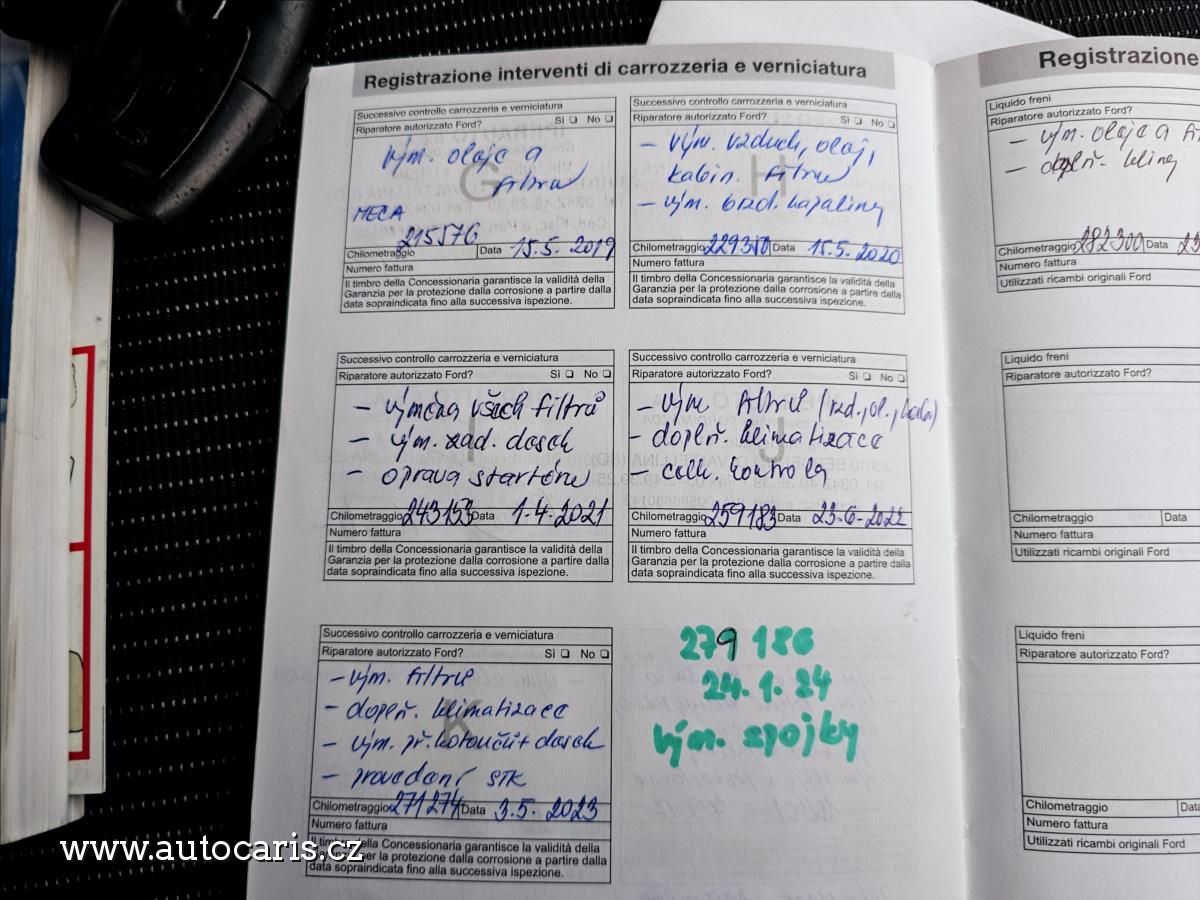 Registrazione interventi di carrozzeria e verniciatura
Successivo controllo carrozzeria e verniciatura
Riparatore autorizzato Ford? Sì ❏ No ❏
Vým. oleje a
filtrů
MECA
215576
Chilometraggio Data 15.5.2019
Numero fattura
Il timbro della Concessionaria garantisce la validità della
Garanzia per la protezione dalla corrosione a partire dalla
data sopraindicata fino alla successiva ispezione.
Successivo controllo carrozzeria e verniciatura
Riparatore autorizzato Ford? Sì ❏ No ❏
- vým. vzduch, olej,
kabin. filtru
- vým. brzd. kapaliny
Chilometraggio Data 15.5.2020
Numero fattura
Il timbro della Concessionaria garantisce la validità della
Garanzia per la protezione dalla corrosione a partire dalla
data sopraindicata fino alla successiva ispezione.
Successivo controllo carrozzeria e verniciatura
Riparatore autorizzato Ford? Sì ❏ No ❏
- výměna všech filtrů
- vým. zad. desek
- oprava startéru
Chilometraggio 243153 Data 1.4.2021
Numero fattura
Il timbro della Concessionaria garantisce la validità della
Garanzia per la protezione dalla corrosione a partire dalla
data sopraindicata fino alla successiva ispezione.
Successivo controllo carrozzeria e verniciatura
Riparatore autorizzato Ford? Sì ❏ No ❏
- vým. filtrů (vzd., ol., kab.)
- doplň. klimatizace
- celk. kontrola
Chilometraggio 259183 Data 23.6.2022
Numero fattura
Il timbro della Concessionaria garantisce la validità della
Garanzia per la protezione dalla corrosione a partire dalla
data sopraindicata fino alla successiva ispezione.
Successivo controllo carrozzeria e verniciatura
Riparatore autorizzato Ford? Sì ❏ No ❏
- vým. filtrů
- doplň. klimatizace
- vým. př. kotoučů + desek
- provedení STK
Chilometraggio 271274 Data 3.5.2023
Numero fattura
Il timbro della Concessionaria garantisce la validità della
Garanzia per la protezione dalla corrosione a partire dalla
data sopraindicata fino alla successiva ispezione.
279 186
24.1.24
vým. spojky
Registrazione
Liquido freni
Riparatore autorizzato Ford?
- vým. oleje a
- doplň. klimy
Chilometraggio 282300 Data
Numero fattura
Utilizzati ricambi originali Ford
Liquido freni
Riparatore autorizzato Ford?
Chilometraggio Data
Numero fattura
Utilizzati ricambi originali Ford
Liquido freni
Riparatore autorizzato Ford?
Chilometraggio Data
Numero fattura
Utilizzati ricambi originali Ford
www.autocaris.cz